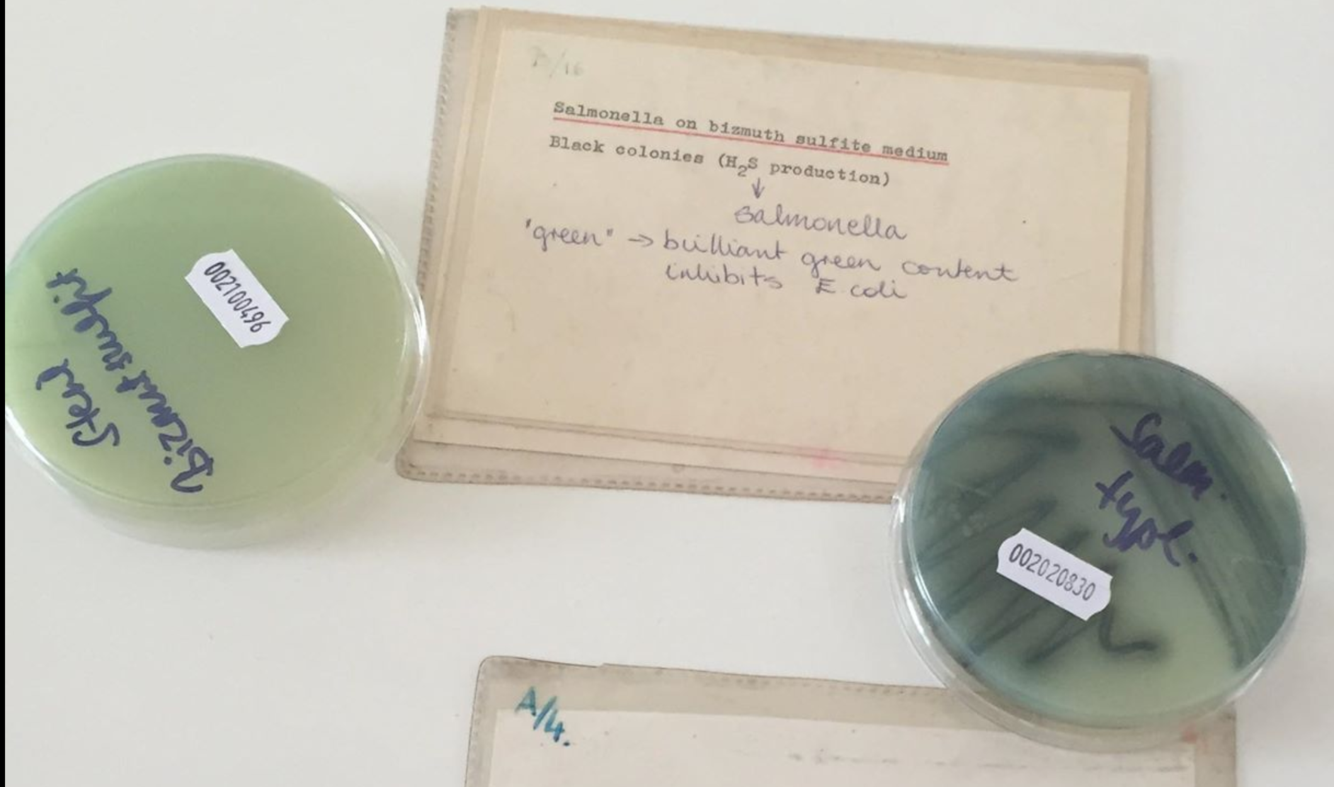 Salmonella on bizmuth sulfite medium
Black colonies (H₂S production)
↓
salmonella
"green" → brilliant green content
inhibits E coli
002100496
Steril
Bizmut sulfit
Salm.
002020830
A/4.